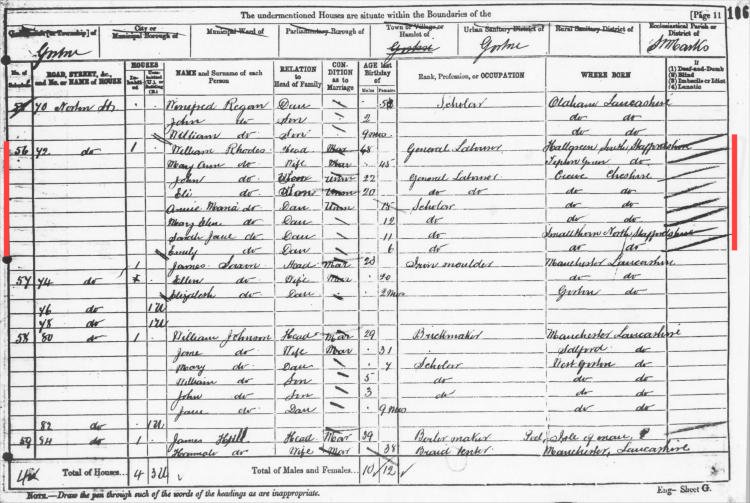 The undermentioned Houses are situate within the Boundaries of the
[Page 11
106
Civil Parish [or Township] of
City or Municipal Borough of
Municipal Ward of
Parliamentary Borough of
Town or Village or Hamlet of
Urban Sanitary District of
Rural Sanitary District of
Ecclesiastical Parish or District of
Gorton Gorton St Marks
No. of Schedule
ROAD, STREET, &c., and No. or NAME of HOUSE
HOUSES
Inhabited
Uninhabited (U.), or Building (B.)
NAME and Surname of each Person
RELATION to Head of Family
CONDITION as to Marriage
AGE last Birthday of
Males
Females
Rank, Profession, or OCCUPATION
WHERE BORN
If
(1) Deaf-and-Dumb
(2) Blind
(3) Imbecile or Idiot
(4) Lunatic
40 Norton St Winifred Regan Dau Scholar Oldham Lancashire
John do Son 2 do do
William do Son 9 mos do do
56 42 do 1 William Rhodes Head Mar 48 General Labourer North Staffordshire
Mary Ann do Wife Mar 45 do
John do Unm 22 General Labourer Crewe Cheshire
Eli do Unm 20 do do do do
Annie Maria do Dau Unm 15 Scholar do do
Mary Elen do Dau 12 do do do
Sarah Jane do Dau 11 do Smallthorn North Staffordshire
Emily do Dau 6 do do do
1 James Head Mar 23 Iron moulder Manchester Lancashire
57 44 do Ellen do Wife Mar 20 do do
Elizabeth do Dau 2 mos Gorton do
46 do 1 U
48 do 1 U
58 80 do 1 William Johnson Head Mar 29 Brickmaker Manchester Lancashire
Jane do Wife Mar 31 Salford do
Mary do Dau 7 Scholar West Gorton do
William do Son 5 do do do
John do Son 3 do do do
Jane do Dau 9 mos do do
82 do 1 U
59 84 do 1 James Head Mar 39 Boiler maker Isle of man
do Wife Mar 38 Braid Manchester, Lancashire
4 Total of Houses... 4 3 U Total of Males and Females... 10 12
NOTE.—Draw the pen through such of the words of the headings as are inappropriate.
Eng—Sheet G.